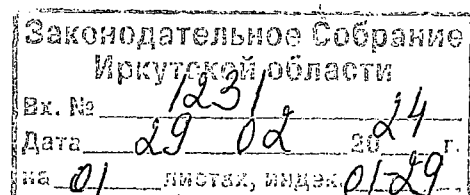 Законодательное Собрание
Иркутской области
Вх. № 1231
Дата 29 02 2024 г.
на 01 листах, индекс 01-29